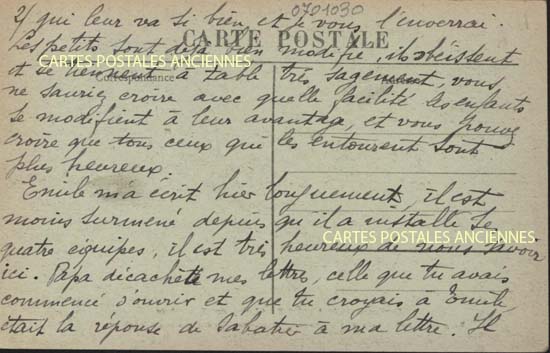 2/ qui leur va si bien, et je vous l'inverrai.
0701030
CARTE POSTALE
Les petits sont déjà bien modifié, ils obéissent
CARTES POSTALES ANCIENNES
Correspondance
et se tiennent à table très sagement, vous
ne sauriez croire avec quelle facilité les enfants
se modifient à leur avantage, et vous pouvez
croire que tous ceux qui les entourent sont
plus heureux.
Emile m'a écrit hier longuement, il est
moins surmené depuis qu'il a installé le
CARTES POSTALES ANCIENNES
quatre équipes, il est très heureux de nous savoir
ici. Papa décachète mes lettres, celle que tu avais
commencé d'ouvrir et que tu croyais à Emile
était la réponse de Sabatié à ma lettre. Il